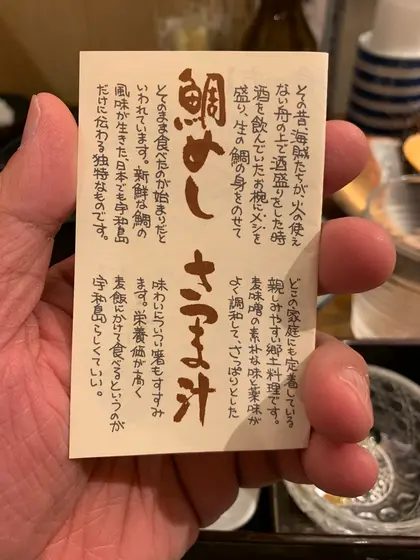 鯛めし
その昔海賊たちが、火の使え
ない舟の上で酒盛りをした時
酒を飲んでいたお椀にメシを
盛り、生の鯛の身をのせて
そのまま食べたのが始まりだと
いわれています。新鮮な鯛の
風味が生きた、日本でも宇和島
だけに伝わる独特なものです。
さつま汁
どこの家庭にも定着している
親しみやすい郷土料理です。
麦味噌の素朴な味と薬味が
よく調和して、さっぱりとした
味わいについつい箸もすすみ
ます。栄養価が高く
麦飯にかけて食べるというのが
宇和島らしくていい。